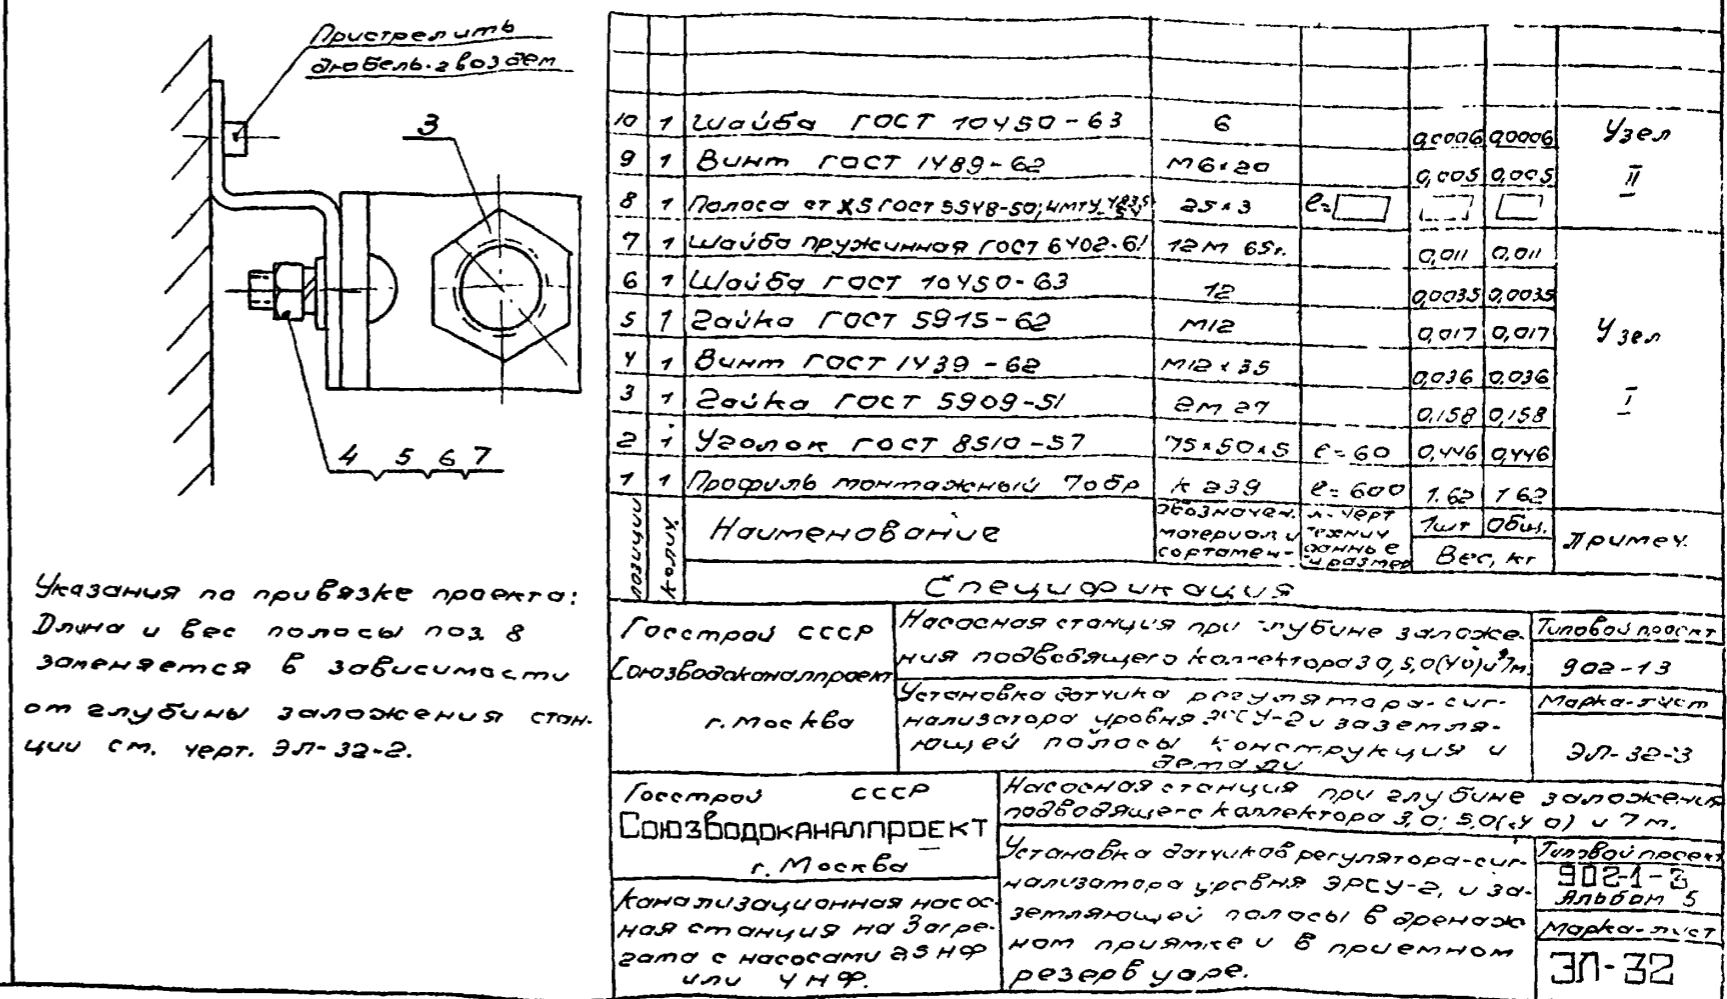 Пристрелить
дюбель-гвоздем
3
4 5 6 7
Указания по привязке проекта:
Длина и вес полосы поз. 8
заменяется в зависимости
от глубины заложения стан-
ции см. черт. ЭЛ-32-2.
10 1 Шайба ГОСТ 10450-63 6 0,0006 0,0006 Узел II
9 1 Винт ГОСТ 1489-62 М6×20 0,005 0,005
8 1 Полоса ст Х5 ГОСТ 5548-50; ЧМТУ 25×3 ℓ=
7 1 Шайба пружинная ГОСТ 6402-61 12М 65г. 0,011 0,011
6 1 Шайба ГОСТ 10450-63 12 0,0035 0,0035
5 1 Гайка ГОСТ 5915-62 М12 0,017 0,017 Узел I
4 1 Винт ГОСТ 1439-62 М12×35 0,036 0,036
3 1 Гайка ГОСТ 5909-51 2М27 0,158 0,158
2 1 Уголок ГОСТ 8510-57 75×50×5 ℓ=60 0,446 0,446
1 1 Профиль монтажный К239 ℓ=600 1.62 1 62
позиции
колич.
Наименование
обозначен.
материал и
сортамен-
черт
технич
данные
и размер
1шт Общ.
Вес, кг
Примеч.
Спецификация
Госстрой СССР
Союзводоканалпроект
г. Москва
Насосная станция при глубине заложе-
ния подводящего коллектора 3 0, 5,0 (4 0) и 7м
Установка датчика регулятора-сиг-
нализатора уровня ЭРСУ-2 и заземля-
ющей полосы Конструкция и
детали
Типовой проект
902-1 3
Марка-лист
ЭЛ-32-3
Госстрой СССР
Союзводоканалпроект
г. Москва
Канализационная насос-
ная станция на 3 агре-
гата с насосами 2,5 НФ
или 4 НФ.
Насосная станция при глубине заложения
подводящего коллектора 3,0; 5,0 (4 0) и 7 м.
Установка датчиков регулятора-сиг-
нализатора уровня ЭРСУ-2, и за-
земляющей полосы в дренаж
ном приямке и в приемном
резервуаре.
Типовой проект
902-1-3
Альбом 5
Марка-лист
ЭЛ-32